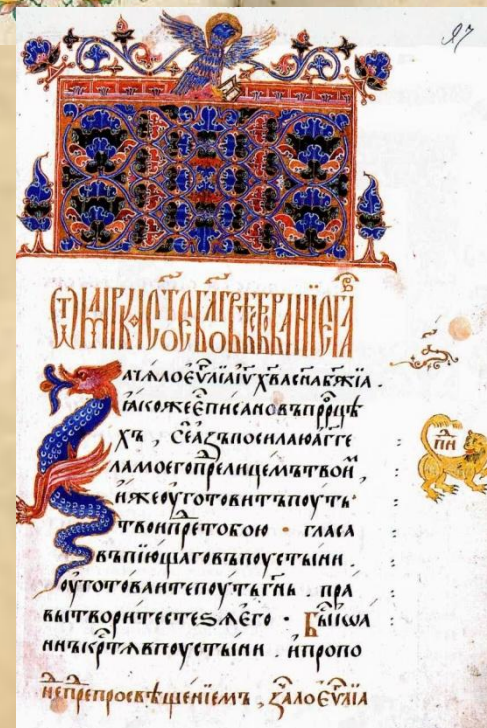 97
Ѿ МАРКА СТ҃ОЕ БЛГ҃ОВѢСТВОВАНЇЕ ГЛ҃А
Зачѧло еѵ҃лїа і҃ѵ х҃ва сн҃а бж҃їа .
ꙗкоже є҃ писано въ прр҃оцѣ
хъ , се азъ посилаю агге
ла моего пре лицемъ твои
иже оуготовитъ поуть
твои пре тобою · гласа
въпїющаго въ поустыни .
оуготоваите поуть гн҃ь . пра
вы творите стеѕѧ его · Бы иѡа
ннъ кр҃тѧ в поустыни . и пропо
пн҃
не пре просвѣщенїемъ , зало еѵ҃лїа